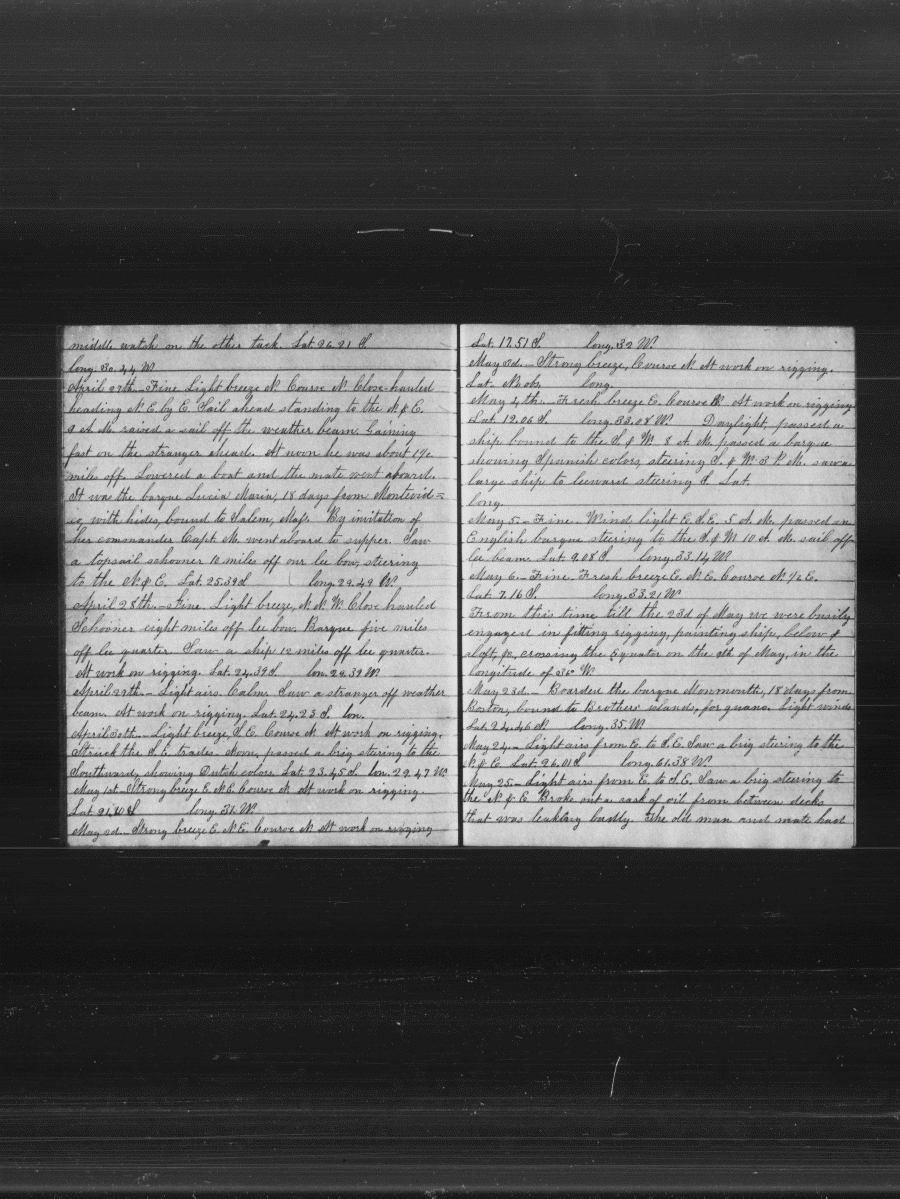 middle watch on the other tack. Lat 26.21 S.
long. 30.44 W
April 27th - Fine Light breeze N. Course N. Close-hauled
heading N.E. by E. Sail ahead standing to the N & E.
9 A.M. raised a sail off the weather beam. Gaining
fast on the stranger ahead. At noon he was about 1½
miles off. Lowered a boat and the mate went aboard.
It was the barque Lucia Maria, 18 days from Montevid=
io, with hides, bound to Salem, Mass. By invitation of
her comonander Capt. M. went aboard to supper. Saw
a topsail schooner 10 miles off our lee bow, steering
to the N & E. Lat. 25.39 S long. 29.49 W.
April 28th - Fine. Light breeze, N.N.W. Close hauled
Schooner eight miles off lee bow. Barque five miles
off lee quarter. Saw a ship 12 miles off lee quarter.
At work on rigging. Lat 24.39 S. lon. 29.39 W.
April 29th - Light airs. Calms Saw a stranger off weather
beam. At work on rigging. Lat. 24.23 S. lon.
April 30th - Light breeze, S.E. Course N. At work on rigging.
Struck the S.E. trades. Noon, passed a brig stering to the
Southward, showing Dutch colors. Lat. 23.45 S. lon. 29.47 W.
May 1st. Strong breeze E.N.E. Course N. At work on rigging.
Lat 21.40 S long. 31. W.
May 2d - Strong breeze E.N.E. Course N. At work on rigging
Lat. 17.51 S. long. 32 W.
May 3d. - Strong breeze, Course N. At work on rigging.
Lat. No obs. long.
May 4th. - Fresh breeze E. Course N. At work on rigging
Lat. 12.06 S. long. 33.08 W. Daylight, passed a
ship bound to the S. & W. 8 A.M. passed a barque
showing Spanish colors, steering S. & W. 3 P.M. saw a
large ship to leeward steering S. Lat.
long.
May 5 - Fine. Wind light E.S.E. 5 A.M. passed an
English barque steering to the S & W. 10 A.M. sail off
lee beam. Lat. 9.08 S. long. 33.14 W.
May 6 - Fine. Fresh breeze E.N.E. Course N.½ E.
Lat. 7.16 S. long. 33.21 W.
From this time till the 23d of May we were busily
engaged in fitting rigging, painting ship, below &
aloft, &c, crossing the Equator on the 9th of May, in the
longitude of 36° W.
May 23d. - Boarded the barque Monmouth, 18 days from
Boston, bound to Brothers islands, for guano. Light winds
Lat 24.46 N. long. 35. W.
May 24 - Light airs from E. to S.E. Saw a brig stering to the
N. & E. Lat 26.01 S long. 61.38 W.
May 25 - Light airs from E. to S.E. Saw a brig steering to
the N. & E. Broke out a cask of oil from between decks
that was leaking badly. The old man and mate had